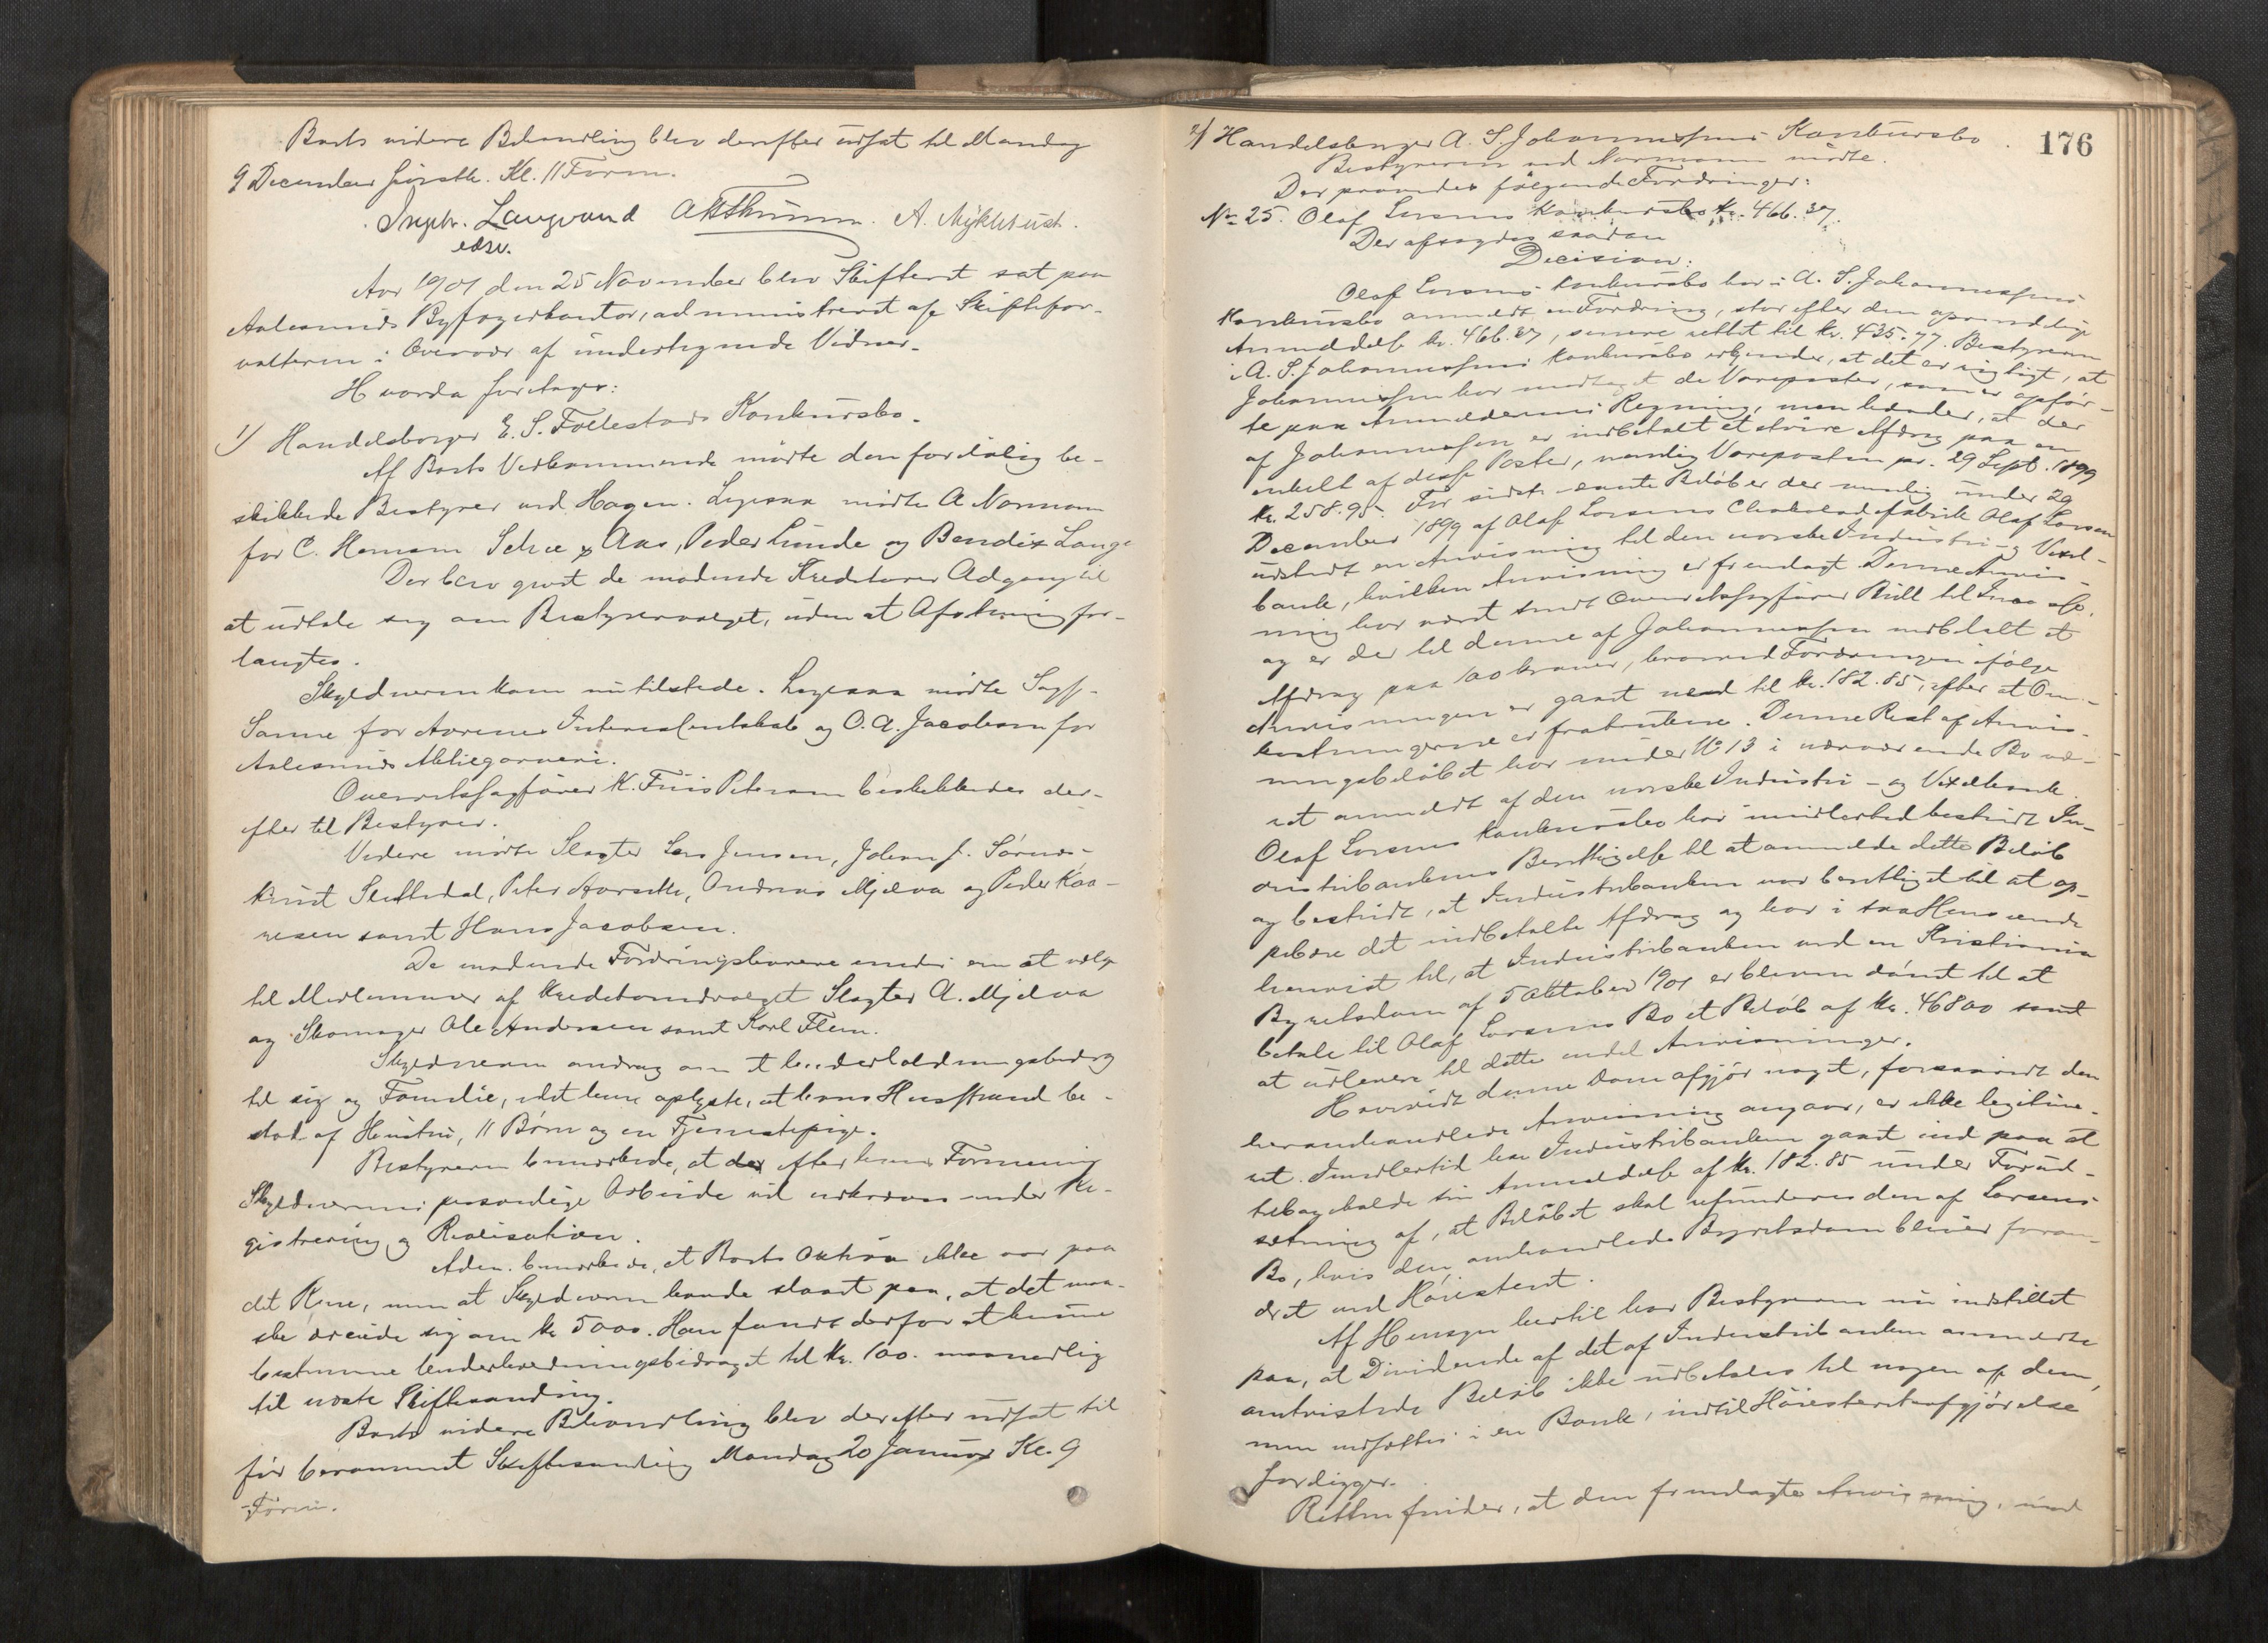 Boets videre Behandling blev derefter udsat til Mandag
9 December førstk. Kl. 11 Form.
Ingbr. Langvand A. Myklebust.
edsv.
Aar 1901 den 25 November blev Skifteret sat paa
Aalesunds Byfogedkontor, administreret af Skiftefor-
valteren i Overvær af undertegnede Vidner.
Hvorda foretoges:
1/ Handelsborger E. S. Follestads Konkursbo.
Af Boets Vedkommende mødte den foreløbig be-
skikkede Bestyrer ved Hagen. Ligesaa mødte A Normann
for C. Hermann Schee & Aas, Peder Lunde og Bendix Lange
Der blev givet de mødende Kreditorer Adgang til
at udtale sig om Bestyrervalget, uden at Afstemning for-
langtes.
Skyldneren kom nu tilstede. Ligesaa mødte Sagf.
Sanne for Interessentskab og O. A. Jacobsen for
Aalesunds Aktiegarveri.
Overretssagfører K. Friis Petersen beskikkedes der-
efter til Bestyrer.
Videre mødte Slagter Lars Jensen, Johan J. Sørnes,
Knut Slettedal, Peter Aarseth, Andreas Mjelva og Peder Kaa-
resen samt Hans Jacobsen.
De mødende Fordringshavere enedes om at vælge
til Medlemmer af Kreditorudvalget Slagter A. Mjelva
og Skomager Ole Andersen samt Karl Flem.
Skyldneren androg om et Underholdningsbidrag
til sig og Familie, idet han oplyste, at hans Husstand be-
stod af Hustru, 11 Børn og en Tjenestepige.
Bestyreren bemærkede, at der efter hans Formening
Skyldnerens personlige Arbeide vil udkræves under Re-
gistrering og Realisation.
Adm. bemærkede, at Boets Aktiva ikke var paa
det Rene, men at Skyldneren havde slaaet paa, at det maa-
ske dreiede sig om kr 5000. Han fandt derfor at kunne
bestemme Underholdningsbidraget til kr. 100. maanedlig
til næste Skiftesamling.
Boets videre Behandling blev derefter udsat til
før berammet Skiftesamling Mandag 20 Januar Kl. 9
Form.
176
2/ Handelsborger A. S. Johannessens Konkursbo.
Bestyreren ved Normann mødte.
Der prøvedes følgende Fordringer:
No 25. Olaf Larsens Konkursbo kr. 466.37.
Der afsagdes saadan
Decision:
Olaf Larsens Konkursbo har i A. S. Johannessens
Konkursbo anmeldt en Fordring, stor efter den oprindelige
Anmeldelse kr. 466.37, senere rettet til kr. 435.77. Bestyreren
i A. S. Johannessens Konkursbo erkjender, at det er rigtigt, at
Johannessen har modtaget de Vareposter, som er opfør-
te paa Anmelderens Regning, men hævder, at der
af Johannessen er indbetalt et større Afdrag paa en
enkelt af disse Poster, nemlig Vareposten pr. 29 Sept. 1899
kr. 258.95. For sidst-nævnte Beløb er der nemlig under 29
December 1899 af Olaf Larsens Chokoladefabrik Olaf Larsen
udstedt en Anvisning til den norske Industri og Vexel-
bank, hvilken Anvisning er fremlagt. Denne Anvis-
ning har været sendt Overretssagfører Krüll til Incasso,
og er der til denne af Johannessen indbetalt et
Afdrag paa 100 kroner, hvorved Fordringen ifølge
Anvisningen er gaaet ned til kr. 182.85, efter at Om-
kostningerne er fratrukne. Denne Rest af Anvis-
ningsbeløbet har under No 13 i nærværende Bo væ-
ret anmeldt af den norske Industri- og Vexelbank.
Olaf Larsens Konkursbo har imidlertid bestridt In-
dustribankens Berettigelse til at anmelde dette Beløb
og bestridt, at Industribanken var berettiget til at op-
pebære det indbetalte Afdrag og har i saa Henseende
henvist til, at Industribanken ved en Kristiania
Byretsdom af 5 Oktober 1901 er bleven dømt til at
betale til Olaf Larsens Bo et Beløb af kr. 46800 samt
at udlevere til dette endel Anvisninger.
Hvorvidt denne Dom afgjør noget, forsaavidt den
heromhandlede Anvisning angaar, er ikke legitime-
ret. Imidlertid har Industribanken gaaet ind paa at
tilbagekalde sin Anmeldelse af kr. 182.85 under Forud-
sætning af, at Beløbet skal refunderes den af Larsens
Bo, hvis den omhandlede Byretsdom bliver foran-
dret ved Høiesteret.
Af Hensyn hertil har Bestyreren nu indstillet
paa, at Dividende af det af Industribanken anmeldte
omtvistede Beløb ikke udbetales til nogen af dem,
men indsættes i en Bank, indtil Høiesteretsafgjørelse
foreligger.
Retten finder, at den fremlagte Anvisning, med